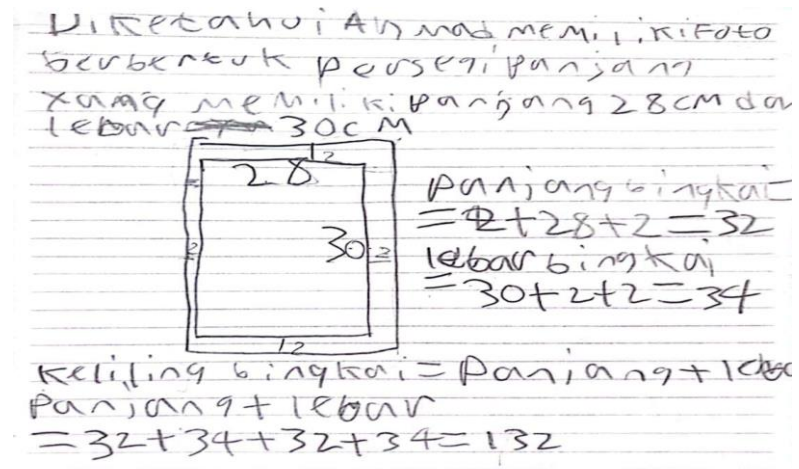 Diketahui Ahmad memiliki Foto
berbentuk persegi panjang
yang memiliki panjang 28 cm dan
lebar 30 cM
2
28
2
30
2
2
panjang bingkai =
= 2 + 28 + 2 = 32
lebar bingkai
= 30 + 2 + 2 = 34
Keliling bingkai = Panjang + leba
Panjang + lebar
= 32 + 34 + 32 + 34 = 132